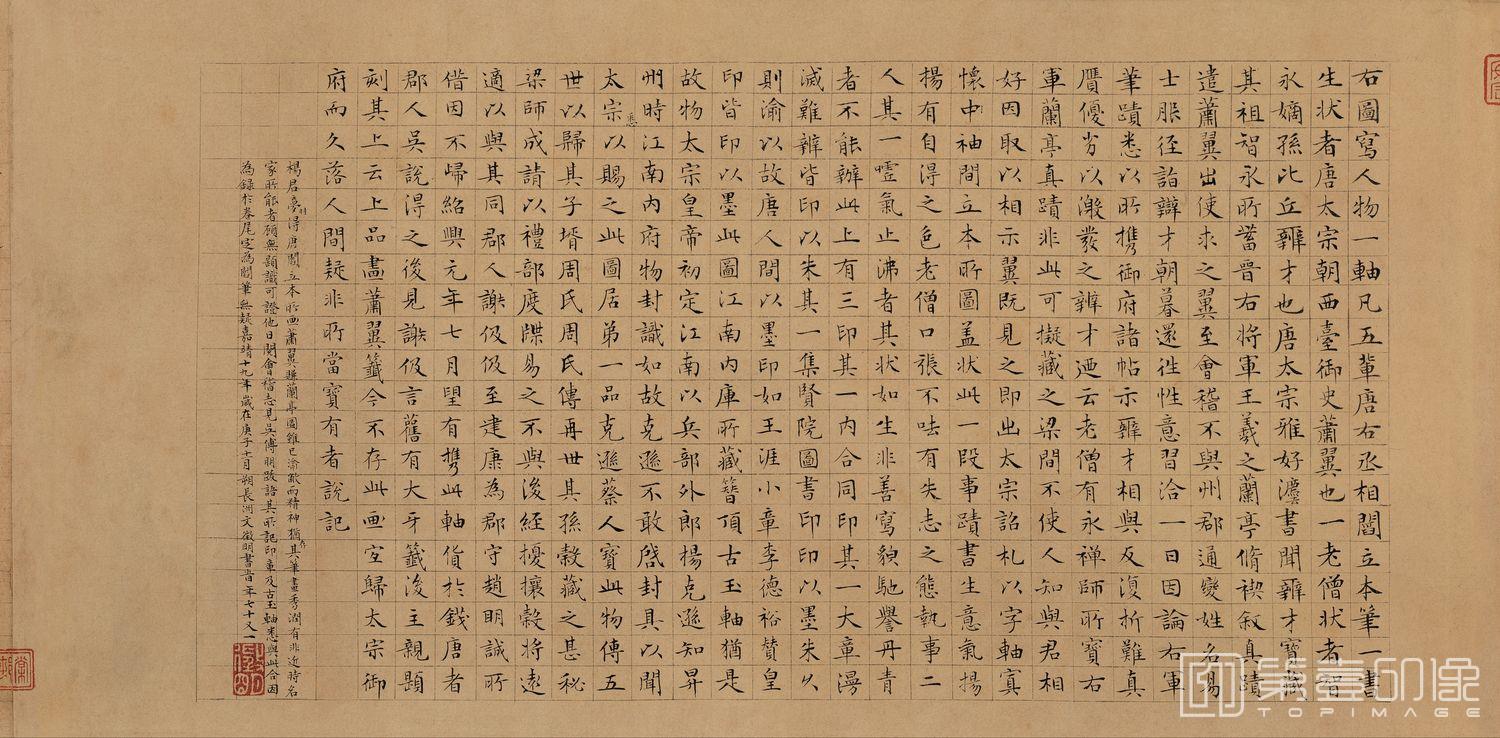 右圖寫人物一軸凡五輩唐右丞相閻立本筆一書
生狀者唐太宗朝西臺御史蕭翼也一老僧狀者智
永嫡孫比丘辨才也唐太宗雅好灋書聞辨才寶藏
其祖智永所蓄晉右將軍王羲之蘭亭脩禊敘真蹟
遣蕭翼出使求之翼至會稽不與州郡通變姓名易
士服徑詣辯才朝暮還往性意習洽一日因論右軍
筆蹟悉以所攜御府諸帖示辨才相與反復折難真
贗優劣以激發之辨才迺云老僧有永禪師所寶右
軍蘭亭真蹟非此可擬藏之梁間不使人知與君相
好因取以相示翼既見之即出太宗詔札以字軸寘
懷中袖間立本所圖盖狀此一段事蹟書生意氣揚
楊有自得之色老僧口張不呿有失志之態執事二
人其一噓氣止沸者其狀如生非善寫貌馳譽丹青
者不能辦此上有三印其一內合同印其一大章漫
滅難辨皆印以朱其一集賢院圖書印印以墨朱久
則渝以故唐人間以墨印如王涯小章李德裕贊皇
印皆印以墨此圖江南內庫所藏簪頂古玉軸猶是
故物太宗皇帝初定江南以兵部外郎楊克遜知昇
州時江南內府物封識如故克遜不敢啓封具以聞
太宗悉以賜之此圖居第一品克遜蔡人寶此物傳五
世以歸其子壻周氏周氏傳再世其孫穀藏之甚秘
梁師成請以禮部度牒易之不與後經擾攘穀將遠
適以與其同郡人謝伋伋至建康為郡守趙明誠所
借因不歸紹興元年七月望有攜此軸貨於錢唐者
郡人吳說得之後見謝伋言舊有大牙籤後主親題
刻其上云上品畫蕭翼籤今不存此画宜歸太宗御
府而久落人間疑非所當寶有者說記
楊君夢得唐閻立本所画蕭翼賺蘭亭圖雖已渝敝而精神猶存其筆畫秀潤有非近時名
家所能者顧無題識可證他日閱會稽志見吳傅朋跋語其所記印章及古玉軸悉與此合因
為錄於卷尾定為閻筆無疑嘉靖十九年歲在庚子十月朔長洲文徵明書當年七十又一
東壹印像
TOPIMAGE